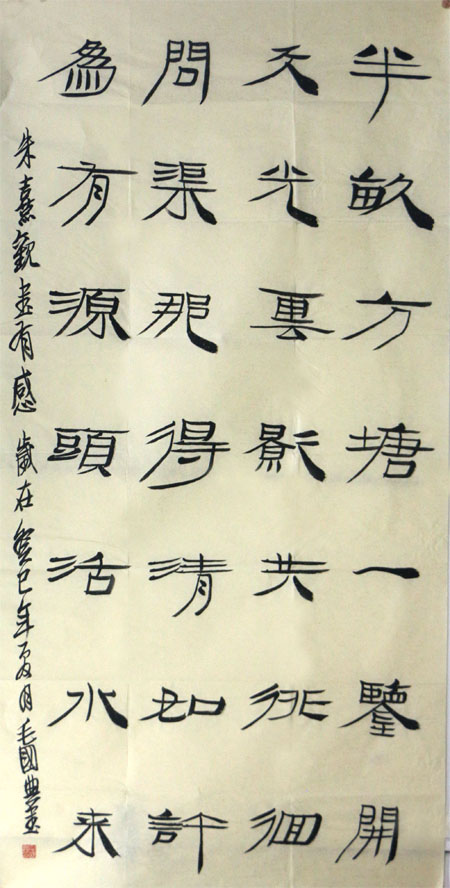 半畝方塘一鑒開
天光雲影共徘徊
問渠那得清如許
爲有源頭活水来
朱熹觀書有感 歲在癸巳年夏月毛國典書